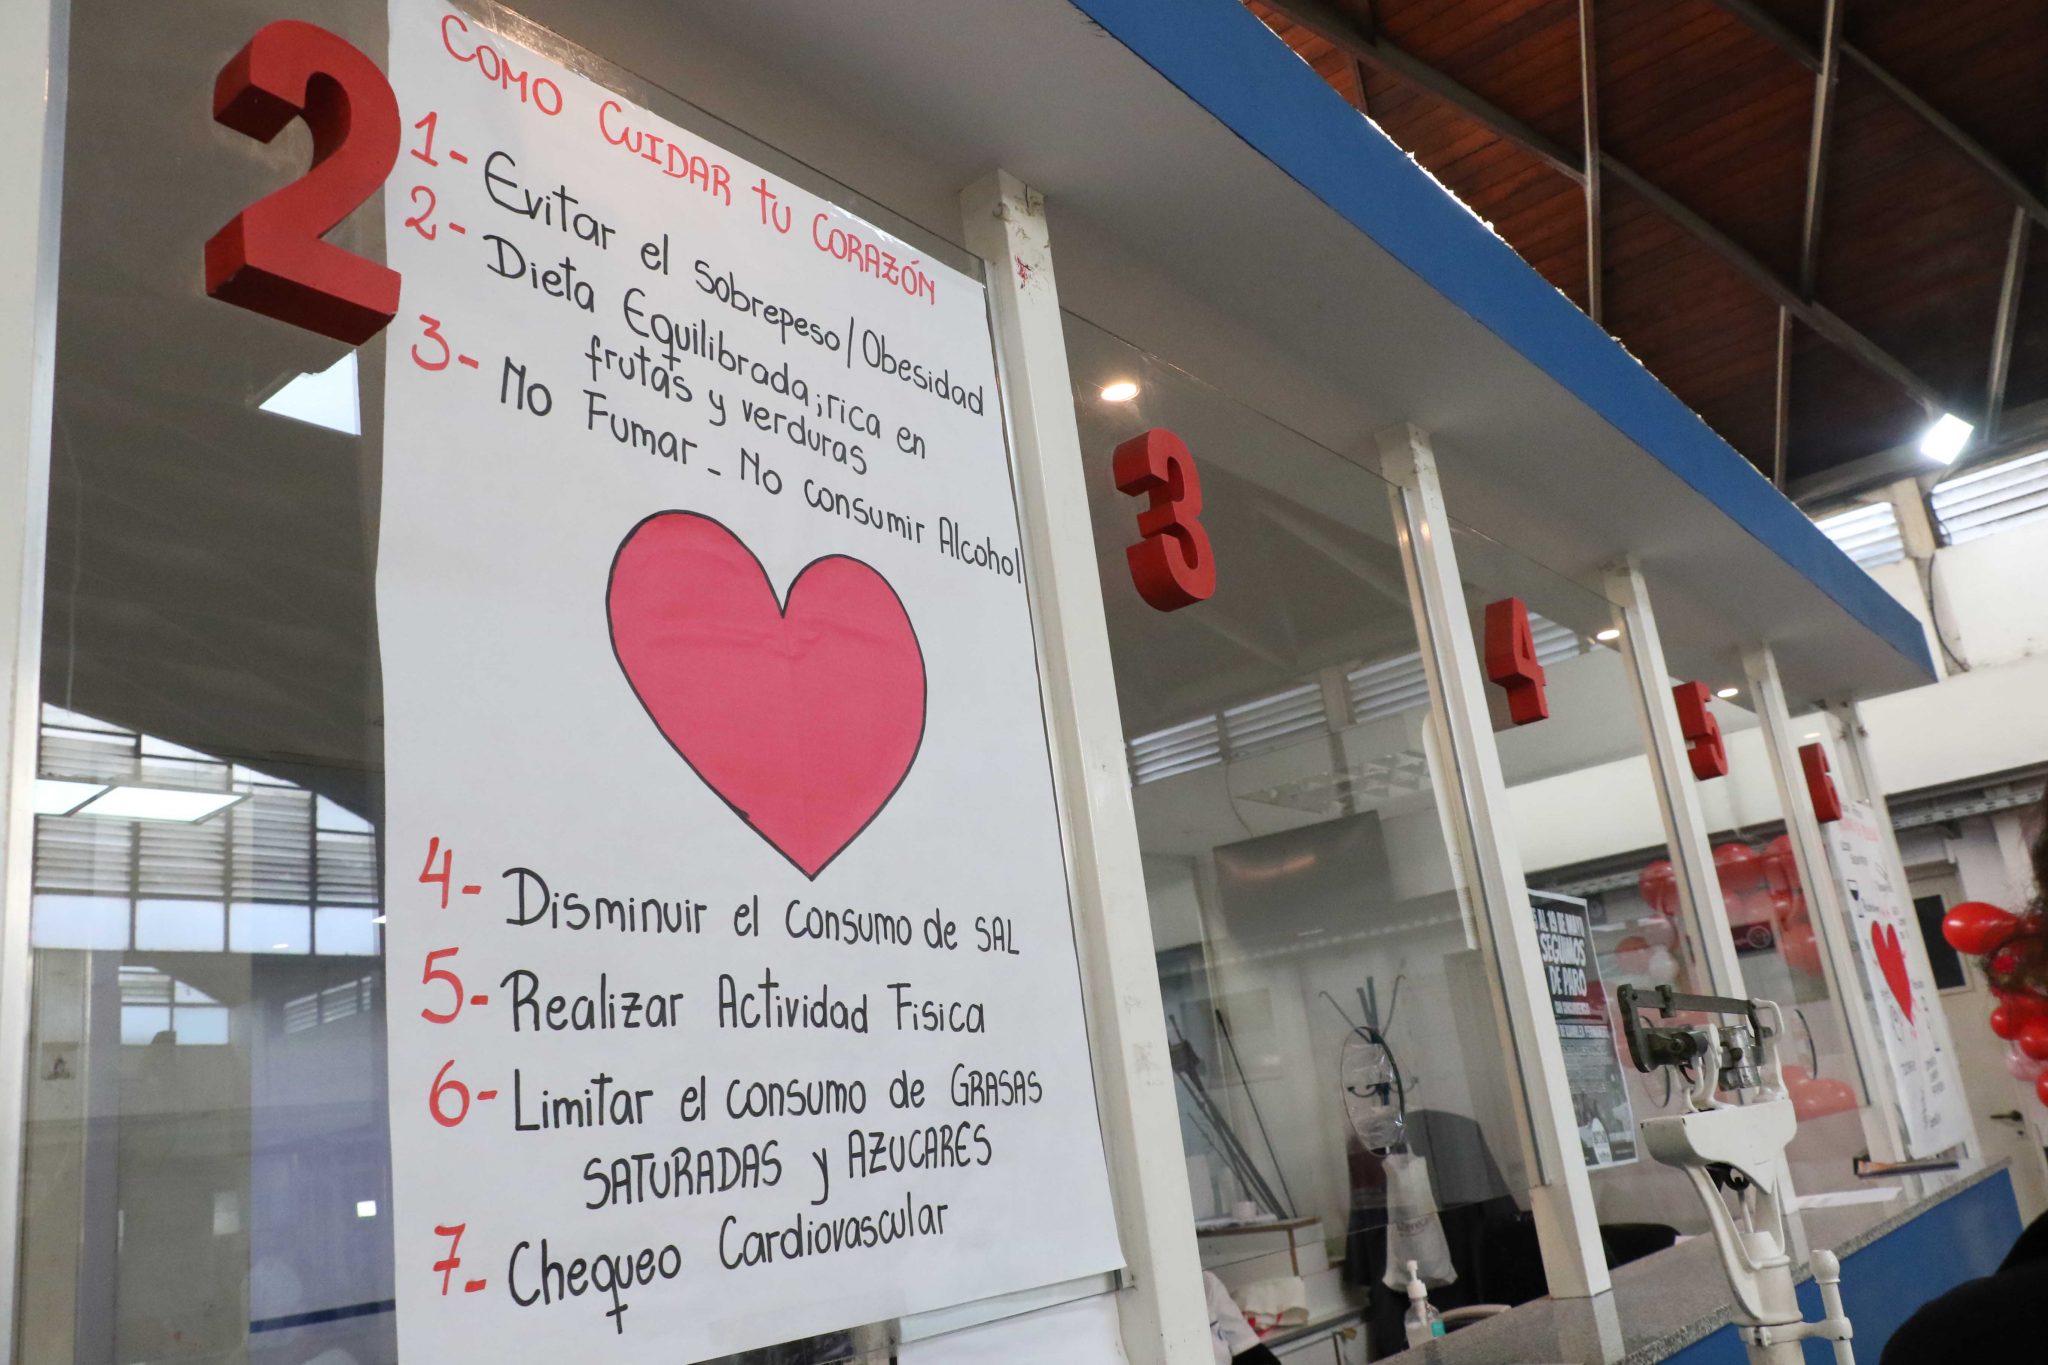 2
COMO CUIDAR tu CORAZÓN
1- Evitar el sobrepeso/Obesidad
2- Dieta Equilibrada; rica en
frutas y verduras
3- No Fumar - No consumir Alcohol
4- Disminuir el consumo de SAL
5- Realizar Actividad Fisica
6- Limitar el consumo de GRASAS
SATURADAS y AZUCARES
7- Chequeo Cardiovascular
3
4
5
6
AL 29 DE MAYO
SEGUIMOS
DE PARO